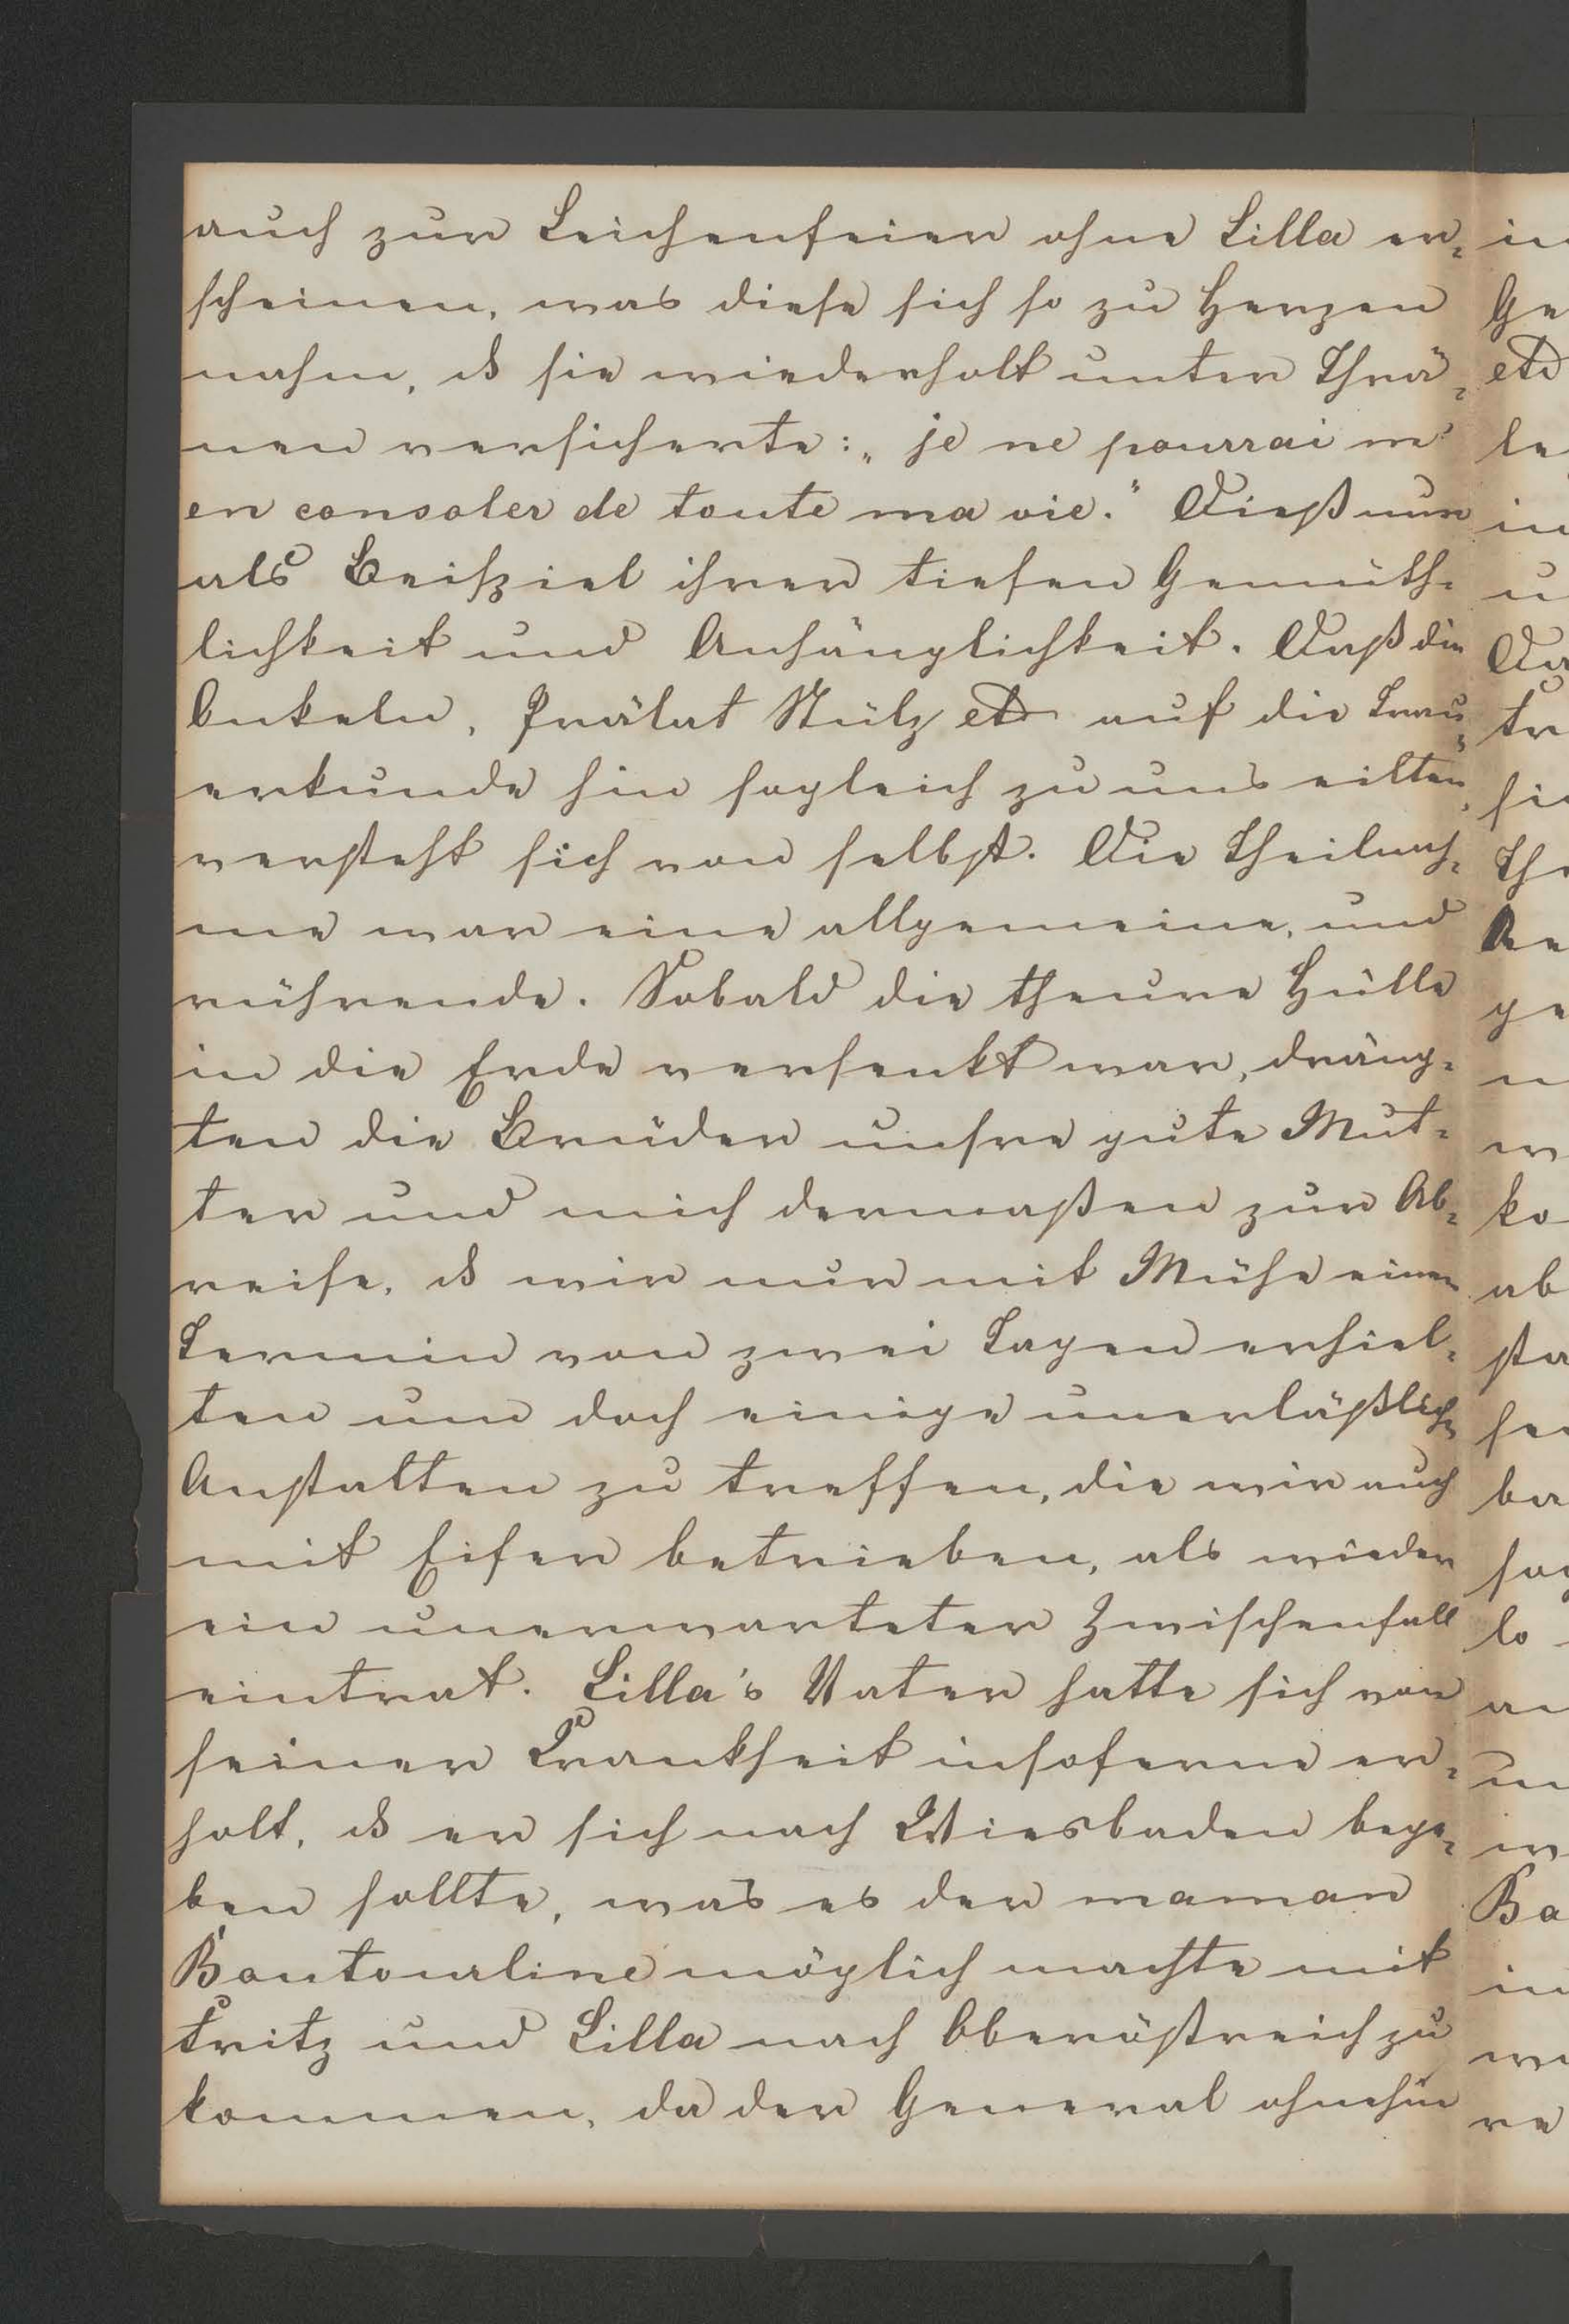 auch zur Leichenfeier ohne Lilla er-
scheinen, was diese sich so zu Herzen
nahm, ds sie wiederholt unter Thrä-
nen versicherte: „je ne pourrai m'
en consoler de toute ma vie." Dieß nur
als Beispiel ihrer tiefen Gemüth-
lichkeit und Anhänglichkeit. Daß die
Onkeln, Prälat Stülz etc auf die Trau-
erkunde hin sogleich zu uns eilten,
versteht sich von selbst. Die Theilnah-
me war eine allgemeine, und
rührende. Sobald die theure Hülle
in die Erde versenkt war, dräng-
ten die Brüder unsre gute Mut-
ter und mich dermaßen zur Ab-
reise, ds wir nur mit Mühe einen
Termin von zwei Tagen erhiel-
ten um doch einige unerläßliche
Anstalten zu treffen, die wir auch
mit Eifer betrieben, als wieder
ein unerwarteter Zwischenfall
eintrat. Lilla's Vater hatte sich von
seiner Krankheit insoferne er-
holt, ds er sich nach Wiesbaden bege-
ben sollte, was es der maman
Boutourline möglich machte mit
Fritz und Lilla nach Oberöstreich zu
kommen, da der General ohnehin